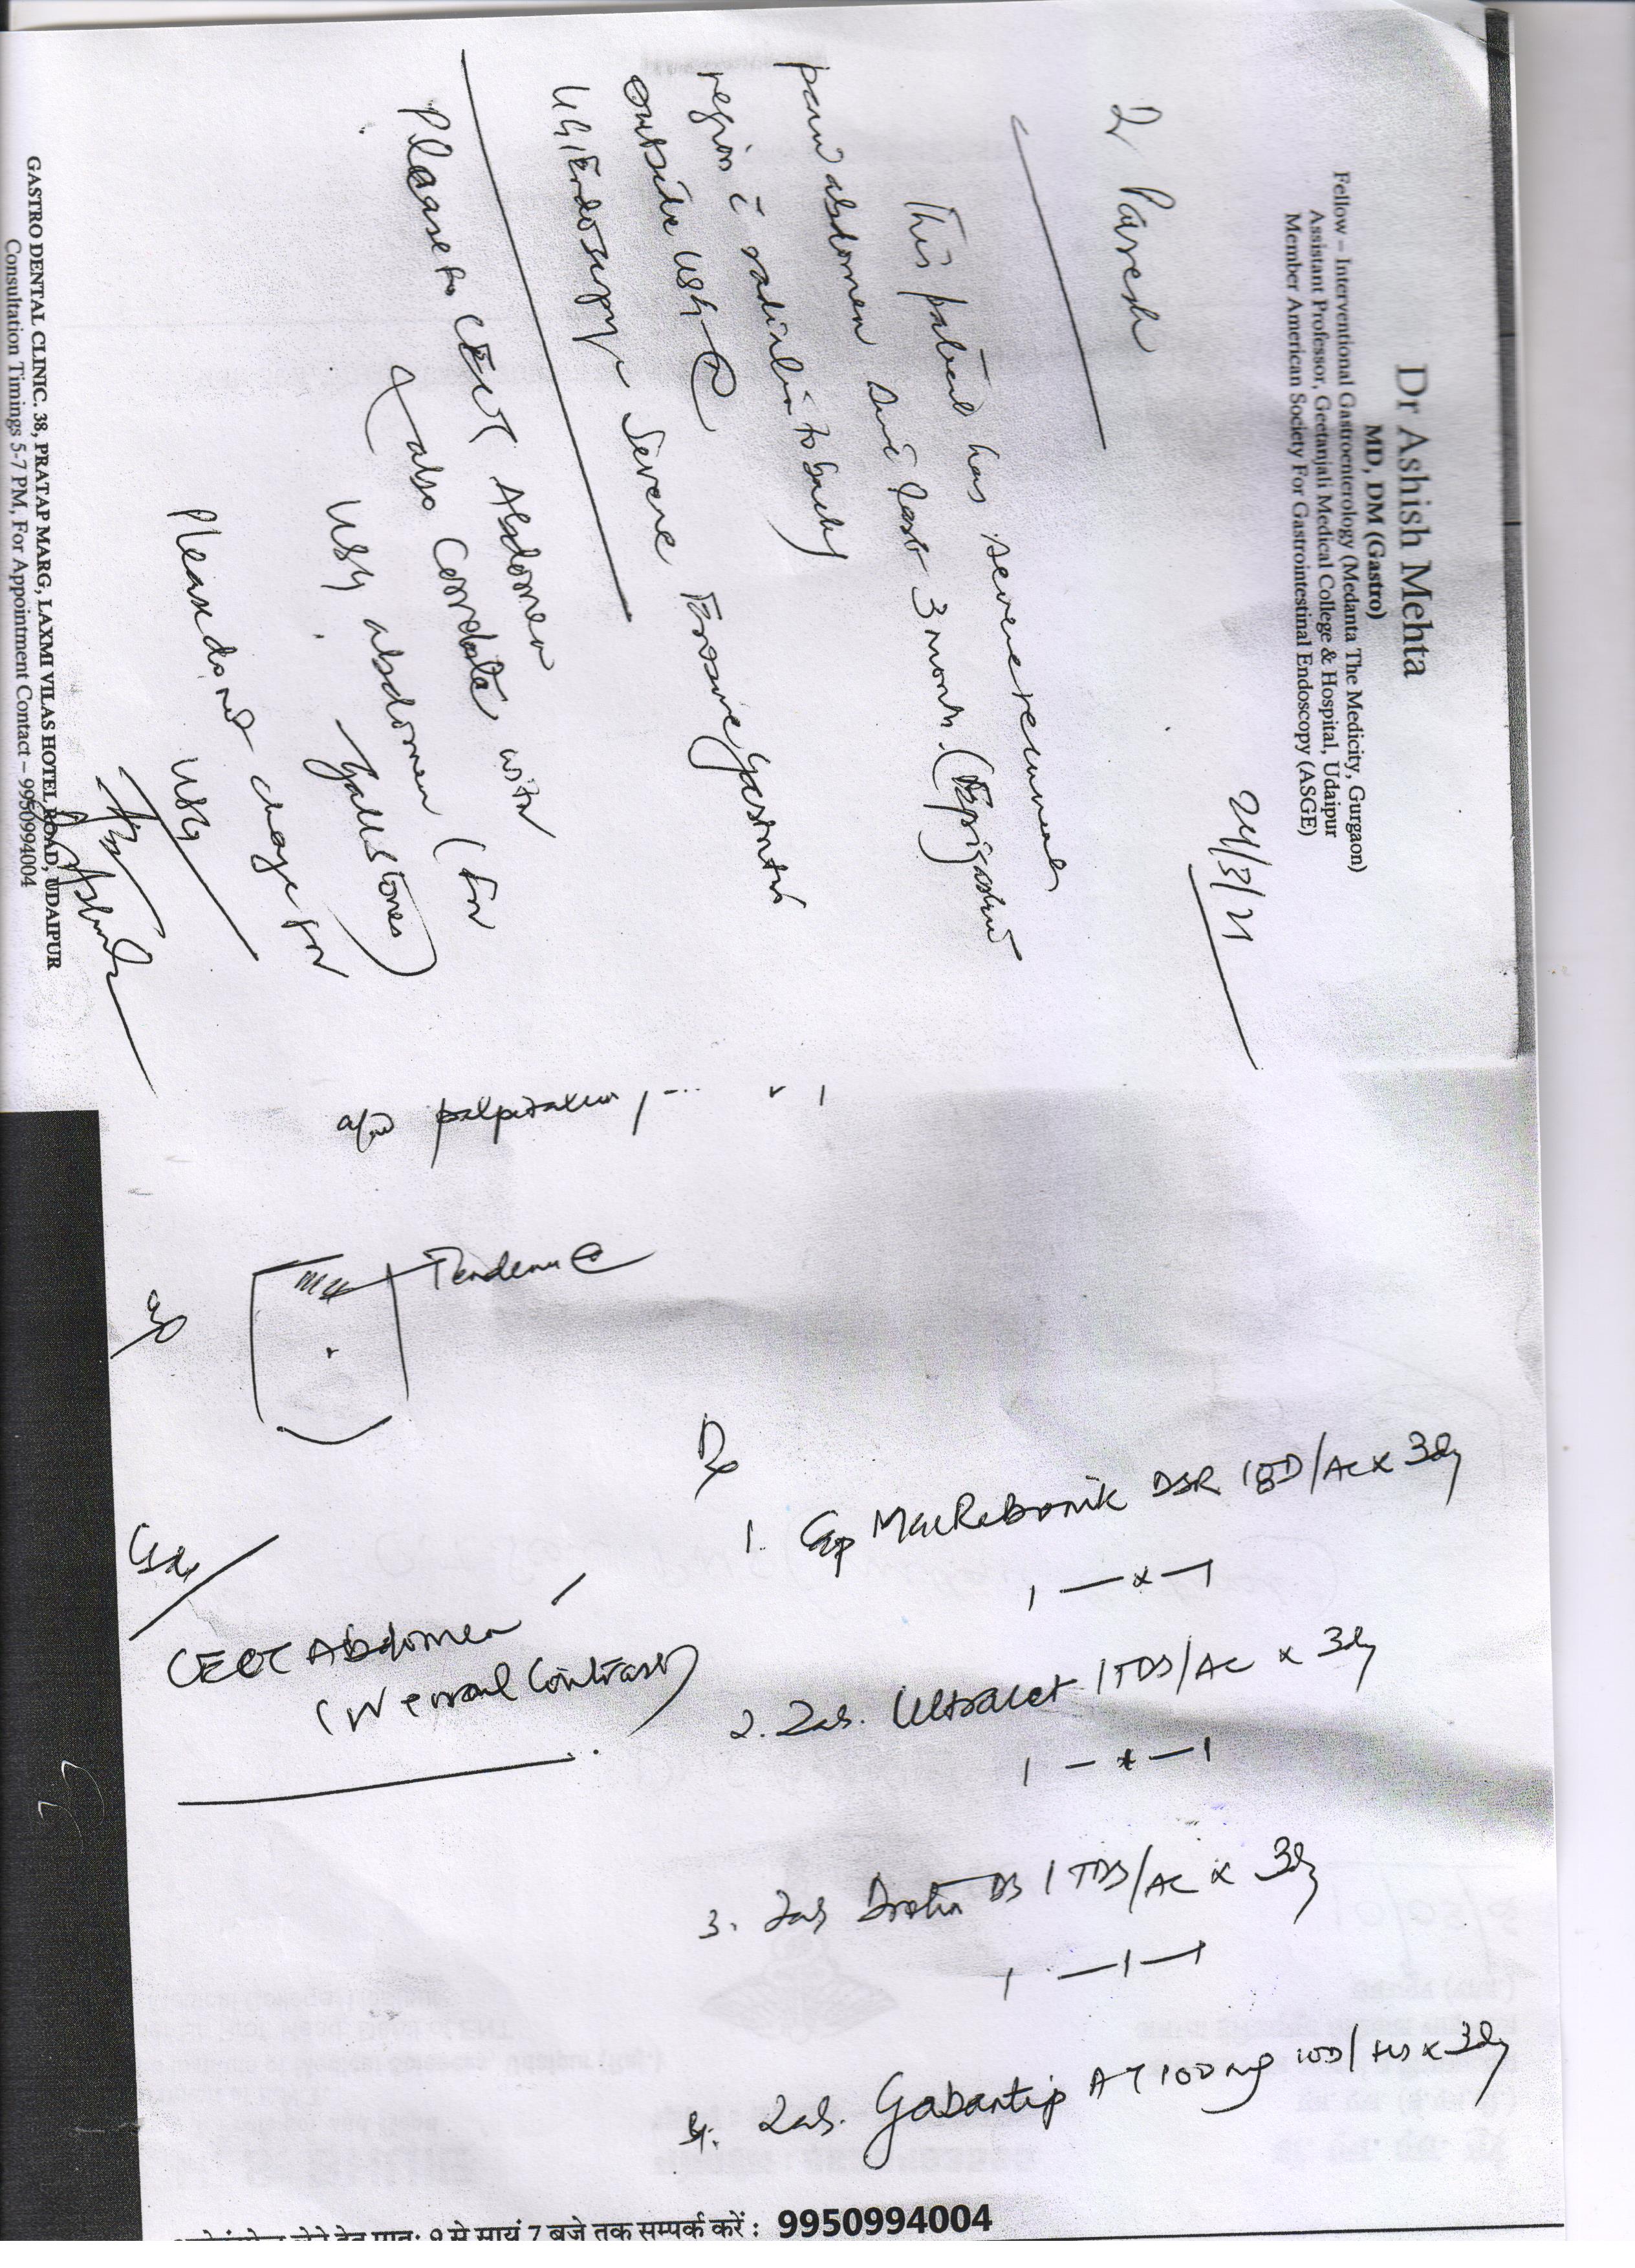 Dr Ashish Mehta
MD, DM (Gastro)
Fellow – Interventional Gastroenterology (Medanta The Medicity, Gurgaon)
Assistant Professor, Geetanjali Medical College & Hospital, Udaipur
Member American Society For Gastrointestinal Endoscopy (ASGE)
24/3/21
Dr Paresh
This patient has severe recurrent
pain abdomen since last 3 month. (Epigastric
region c̄ radiation to back)
outside USG
UGI Endoscopy ~ Severe Erosive Gastritis
Please do CECT Abdomen
& also Correlate with
USG abdomen (for
Gallstones)
Please do not charge for
USG
GASTRO DENTAL CLINIC. 38, PRATAP MARG, LAXMI VILAS HOTEL ROAD, UDAIPUR
Consultation Timings 5-7 PM, For Appointment Contact – 9950994004
palpitation,
Tenderness
CECT Abdomen
(IV & oral Contrast)
Rx
1. Cap MacRabonik DSR 1BD/AC x 3dy
1 — x — 1
2. Tab. Ultracet 1TDS/AC x 3dy
1 — x — 1
3. Tab Drotin DS 1 TDS/AC x 3dy
1 — 1 — 1
4. Tab. Gabantip AT 100mg 1OD/HS x 3dy
से सायं 7 बजे तक सम्पर्क करें : 9950994004